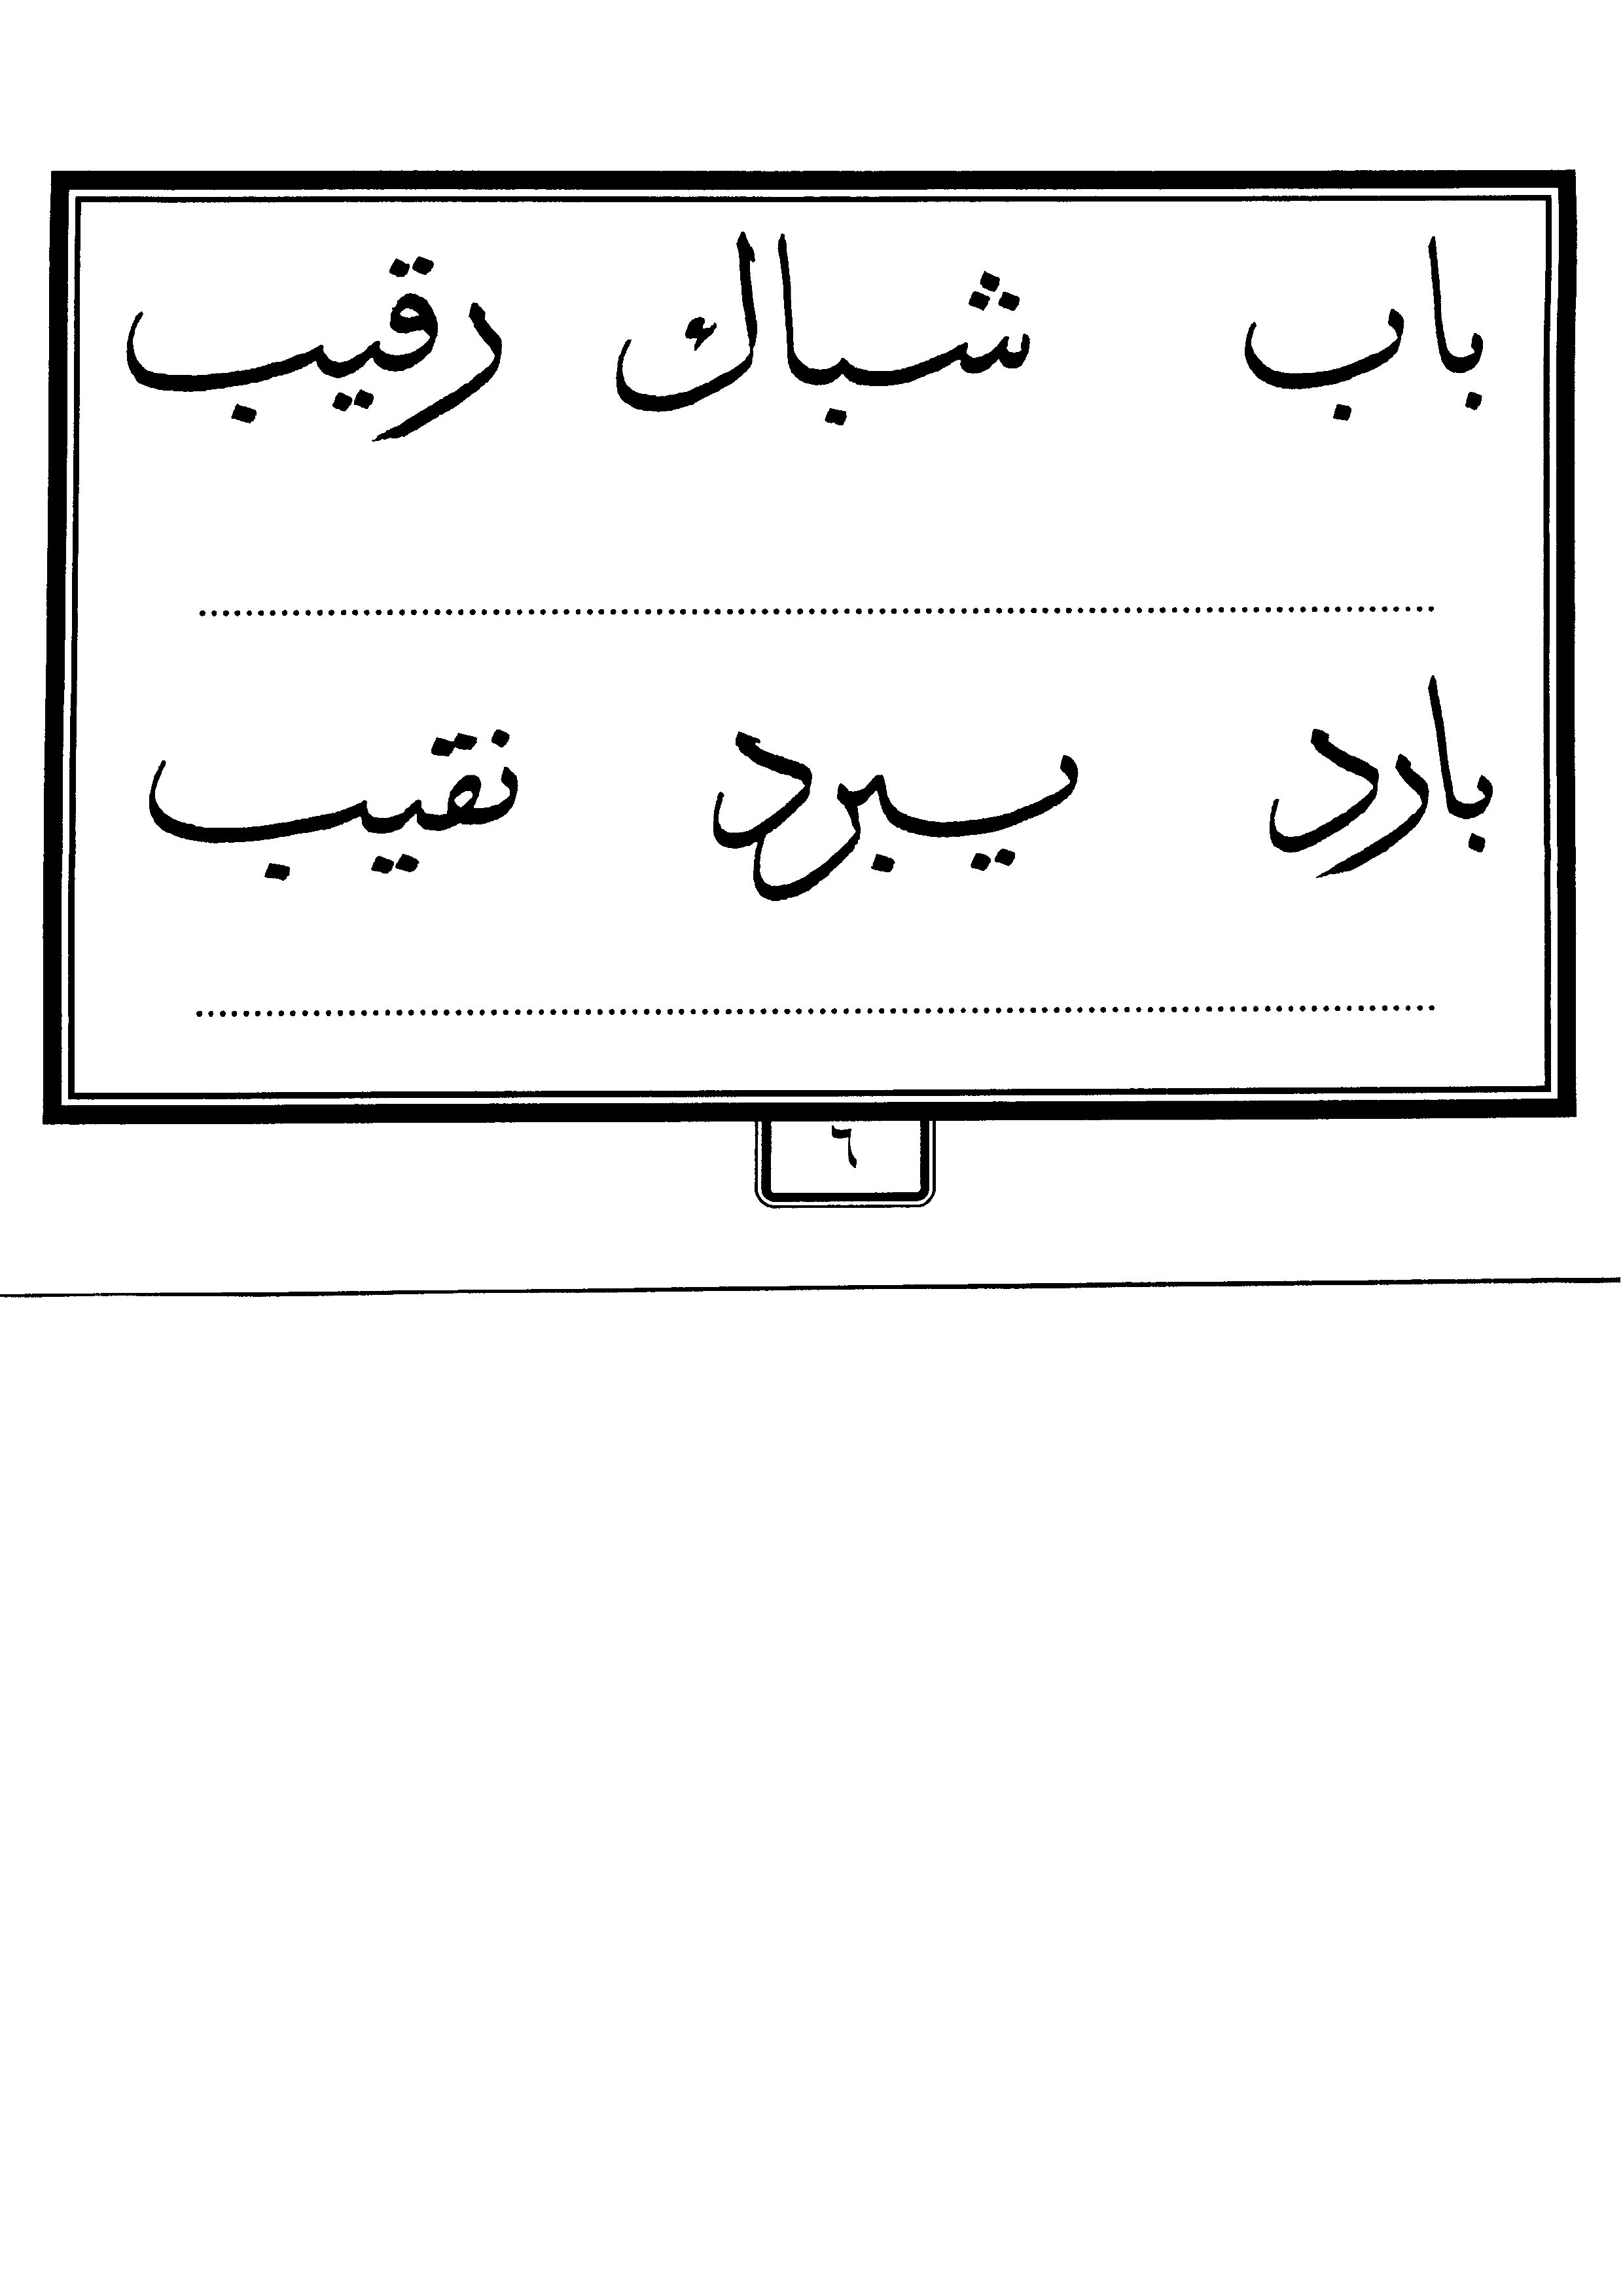 باب شباك رقيب
بارد يبرد نقيب
٦